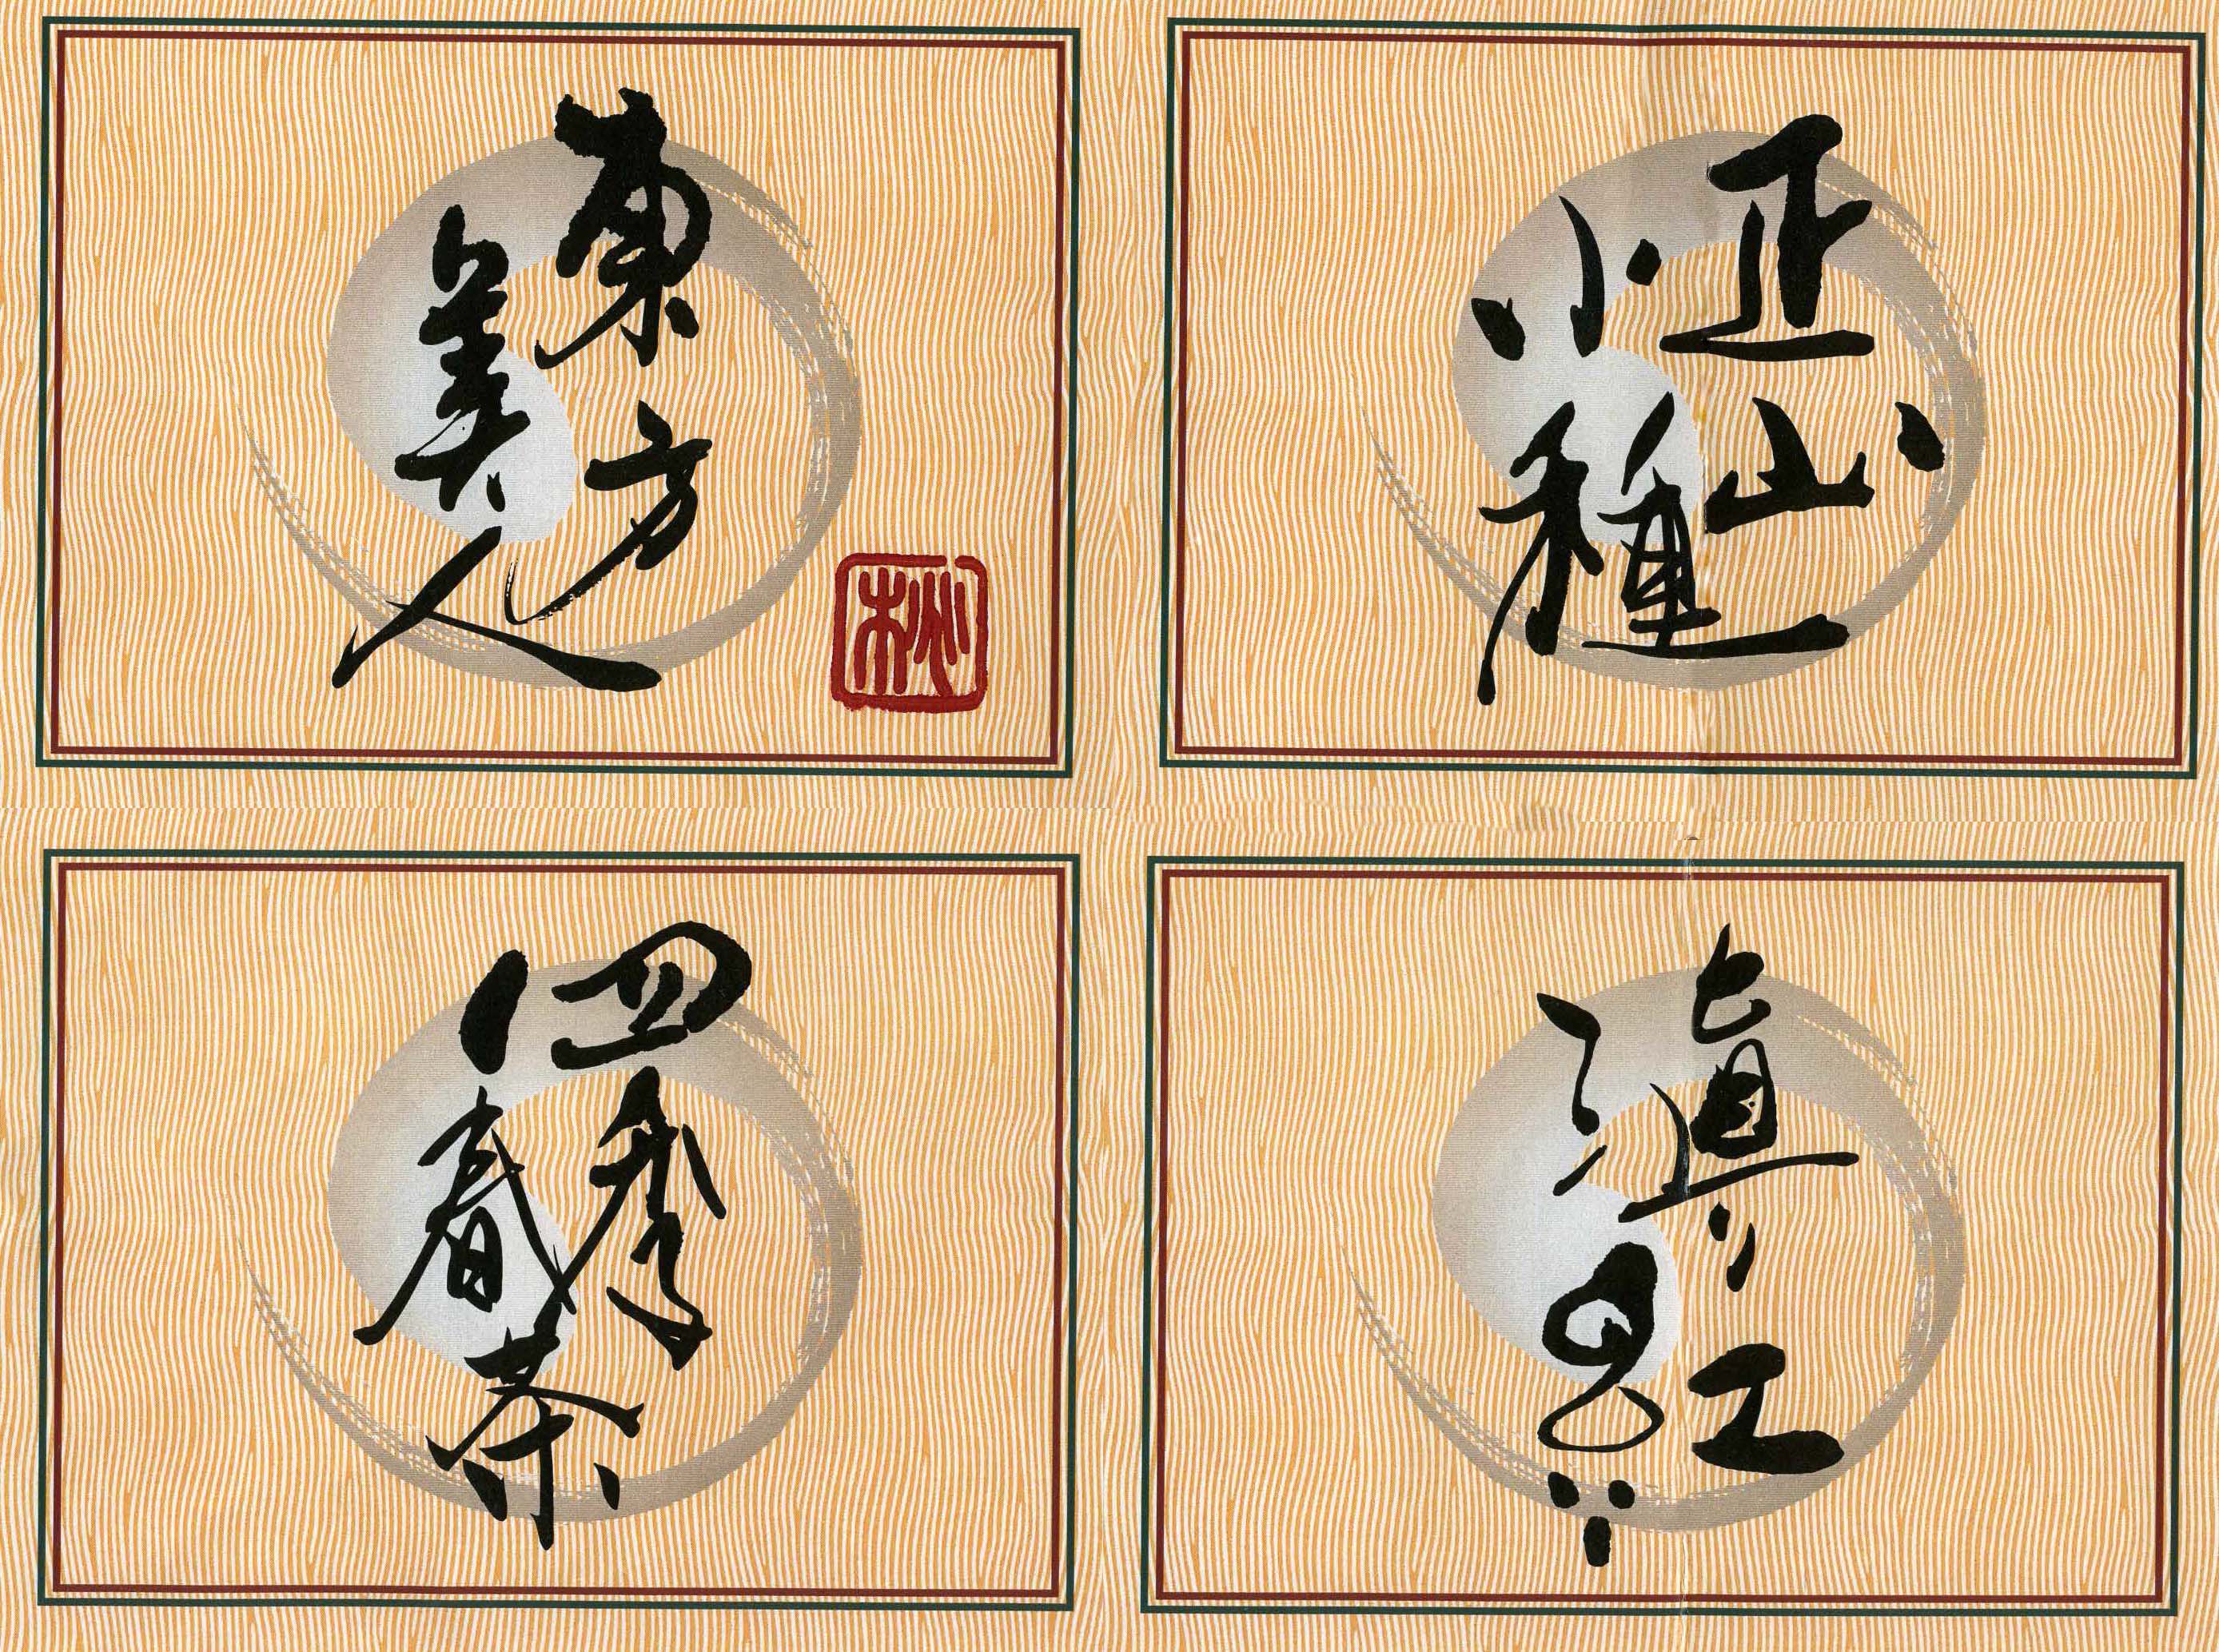 東方
美人
正山
小種
四季
春茶
滇
紅